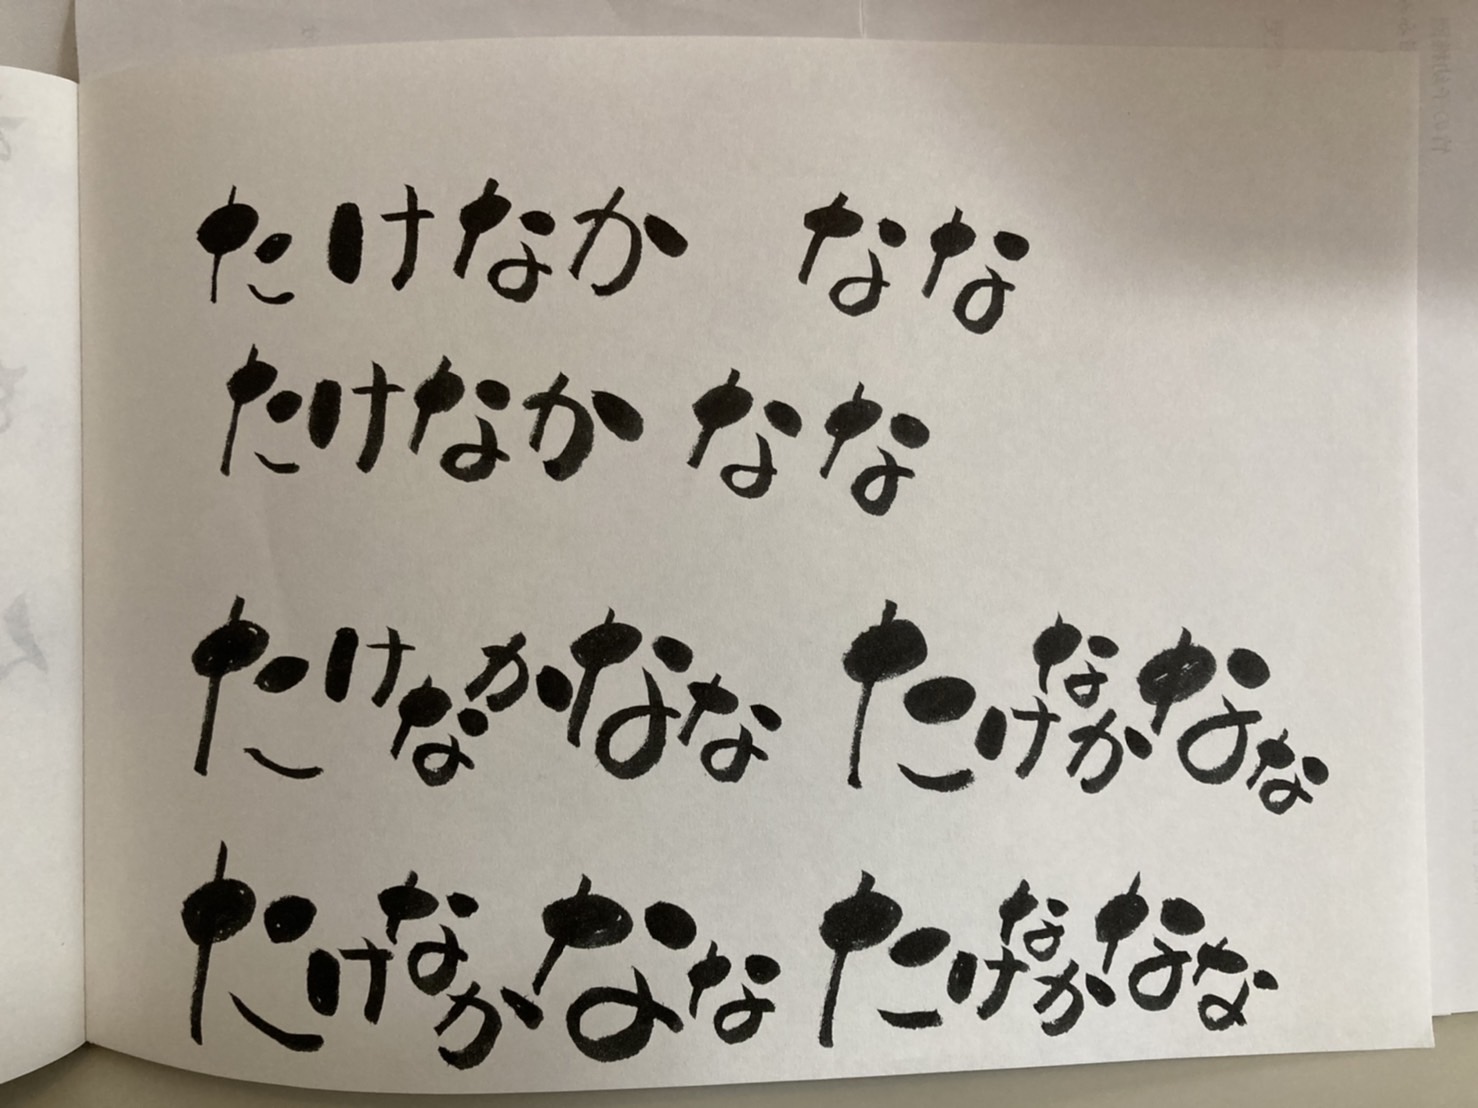 たけなか なな
たけなか なな
たけなかなな たけなかなな
たけなかなな たけなかなな